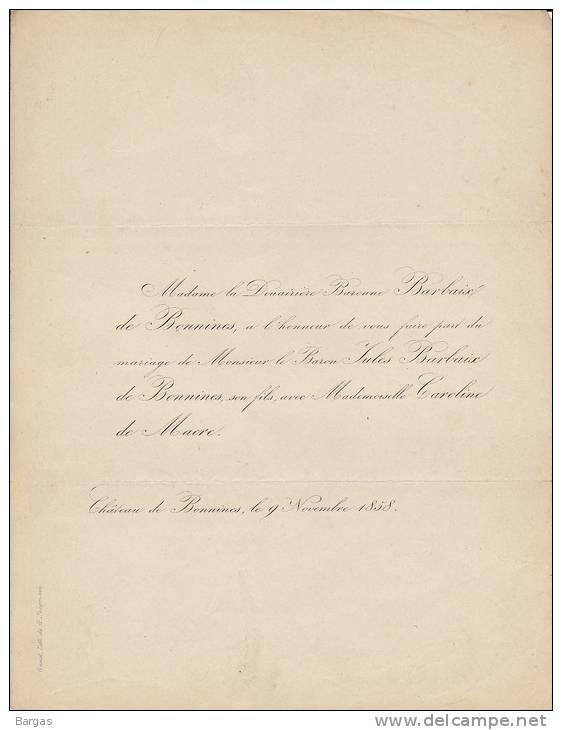 Madame la Douairière Baronne Barbaix
de Bonnines, a l'honneur de vous faire part du
mariage de Monsieur le Baron Jules Barbaix
de Bonnines, son fils, avec Mademoiselle Caroline
de Maere.
Château de Bonnines, le 9 Novembre 1858.
Gand, Lith. de
Bargas
www.delcampe.net